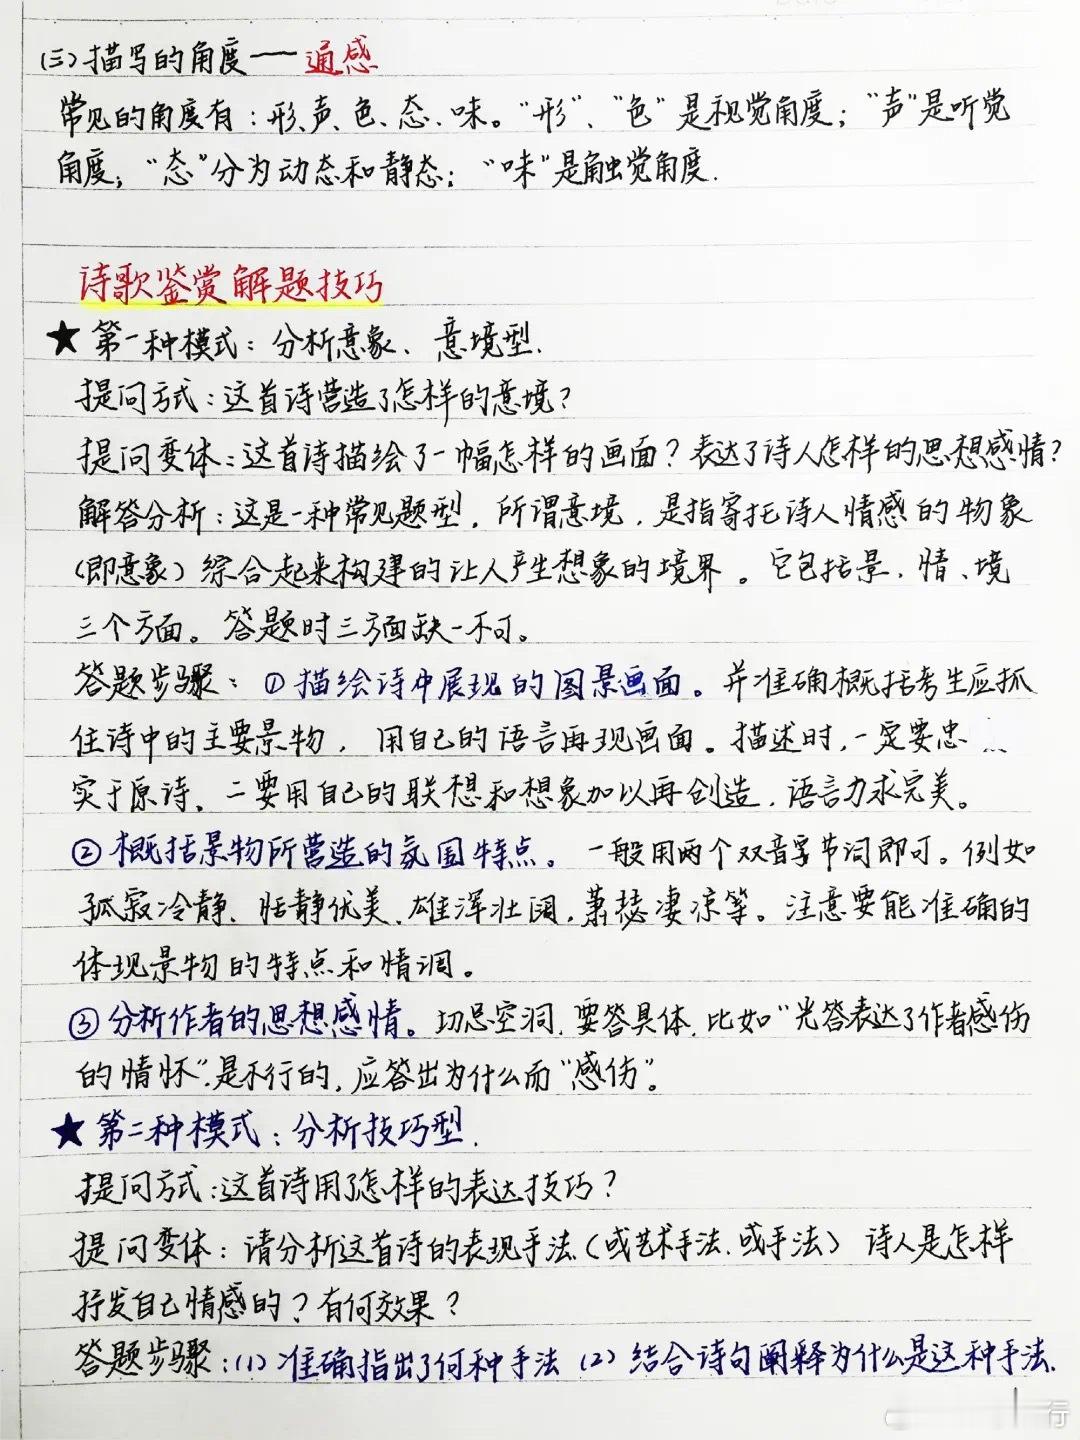 (三)描写的角度——通感
常见的角度有:形、声、色、态、味。"形"、"色"是视觉角度;"声"是听觉
角度;"态"分为动态和静态;"味"是触觉角度.
诗歌鉴赏解题技巧
★第一种模式:分析意象、意境型.
提问方式:这首诗营造了怎样的意境?
提问变体:这首诗描绘了一幅怎样的画面?表达了诗人怎样的思想感情?
解答分析:这是一种常见题型,所谓意境,是指寄托诗人情感的物象
(即意象)综合起来构建的让人产生想象的境界。它包括景、情、境
三个方面。答题时三方面缺一不可。
答题步骤:①描绘诗中展现的图景画面。并准确概括考生应抓
住诗中的主要景物,用自己的语言再现画面。描述时,一定要忠
实于原诗,二要用自己的联想和想象加以再创造,语言力求完美。
②概括景物所营造的氛围特点。一般用两个双音字节词即可。例如
孤寂冷静、恬静优美、雄浑壮阔,萧瑟凄凉等。注意要能准确的
体现景物的特点和情调。
③分析作者的思想感情。切忌空洞,要答具体,比如"光答表达了作者感伤
的情怀",是不行的,应答出为什么而"感伤"。
★第二种模式:分析技巧型.
提问方式:这首诗用了怎样的表达技巧?
提问变体:请分析这首诗的表现手法(或艺术手法.或手法)诗人是怎样
抒发自己情感的?有何效果?
答题步骤:(1)准确指出了何种手法(2)结合诗句阐释为什么是这种手法.
行